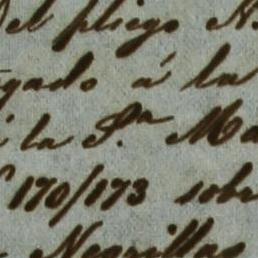 el pliego N.
gado á la
la S.ra Ma
170/173 sobr
Negrillas